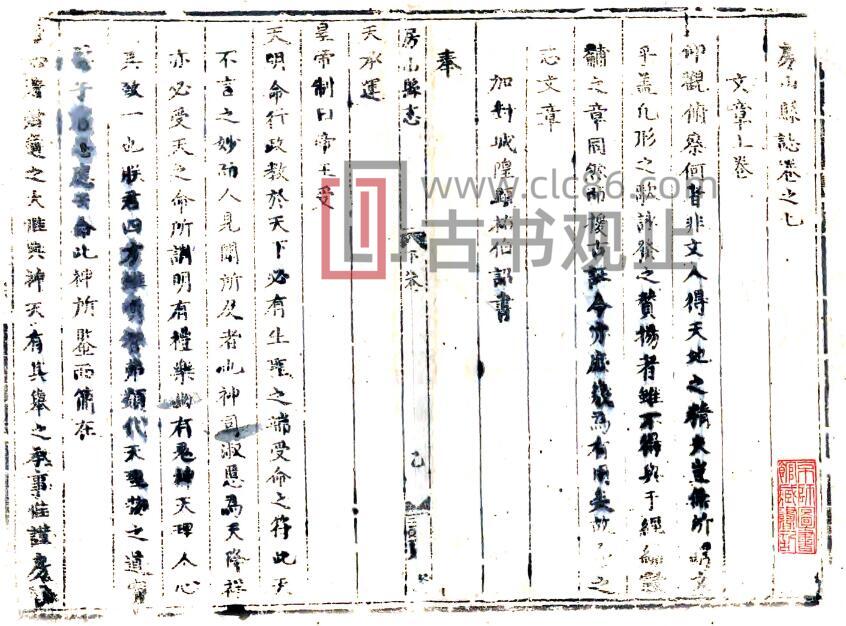 房山縣誌卷之七
文章上卷
仰觀俯察何者非文人得天地之精
乎蓋凡形之歌詠發之贊揚者雖不得與于經
黼之章同然而援古証今亦庶幾為有用
志文章
加封城隍顯祐伯詔書
奉
房山縣志
下卷
天承運
皇帝制曰帝王受
天明命行政教於天下必有生聖之瑞受命之符此天
不言之妙而人見聞所及者也神司淑慝為天降祥
亦必受天之命所謂明有禮樂幽有鬼神天理人心
其致一也朕君四方雖明智弗類代天理物之道
此神所鑒而簡在
之大惟典神天有其舉之承事惟謹
京師圖書館藏書記
www.clc86.com
古书观止